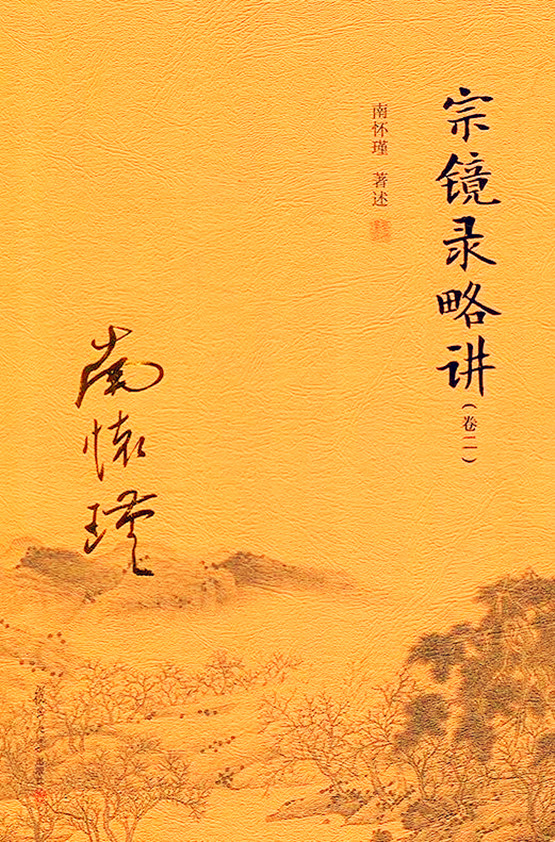 宗镜录略讲
(卷二)
南怀瑾 著述
南怀瑾